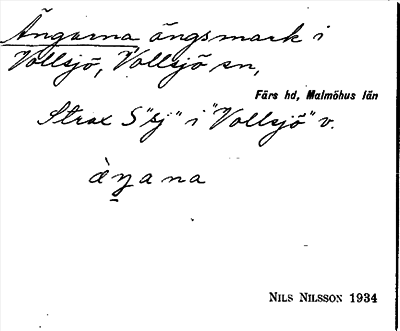 Ängarna ängsmark i
Vollsjö, Vollsjö sn,
Färs hd, Malmöhus län
Strax S "sj" i "Vollsjö" v.
àŋana
NILS NILSSON 1934